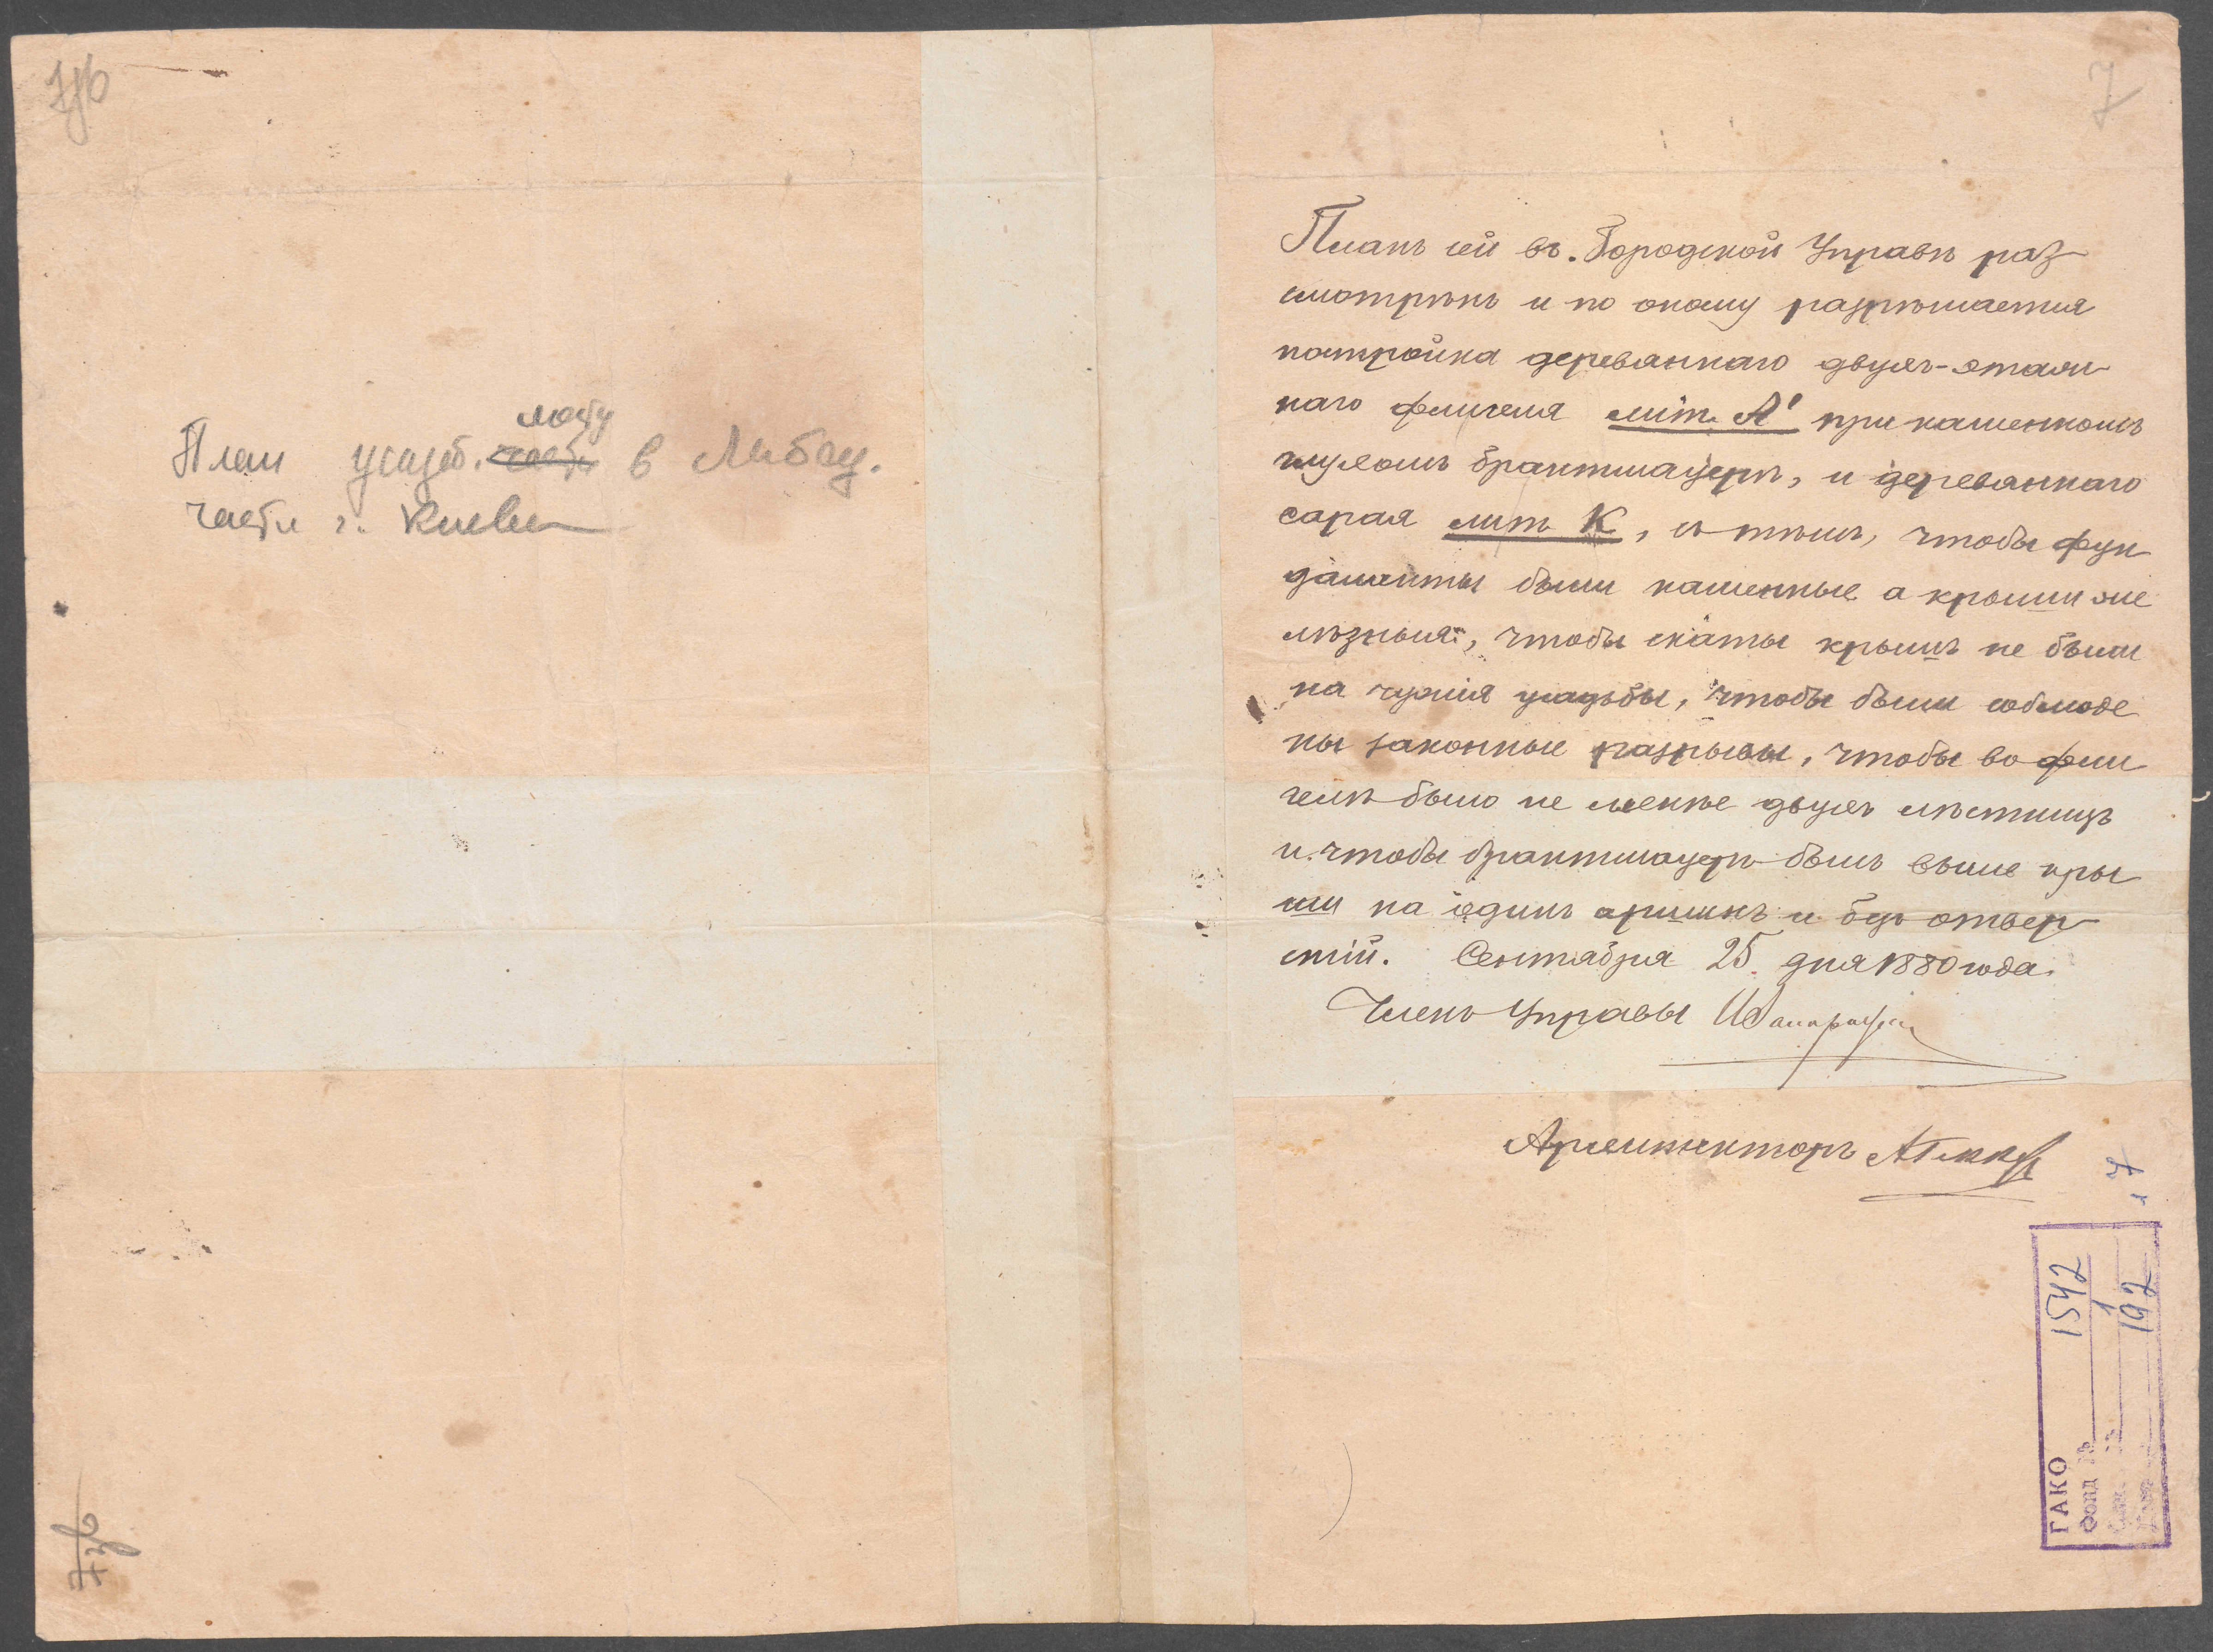 7
План усадб. части в Либед.
части г. Киева
Планъ сей въ Городской Управѣ раз
смотрѣнъ и по оному разрѣшается
постройка деревяннаго двухъ-этаж
наго флигеля лит. А' при каменномъ
глухомъ брантмауерѣ, и деревяннаго
сарая лит К, съ тѣмъ, чтобы фун
даменты были каменные а крыши же
лѣзныя, чтобы скаты крышъ не были
на чужія усадьбы, чтобы были соблюде
ны законные разрывы, чтобы во фли
гелѣ было не менѣе двухъ лѣстницъ
и чтобы брантмауеръ былъ выше кры
ши на одинъ аршинъ и безъ отвер
стій. Сентября 25 дня 1880 года.
Членъ Управы
Архитекторъ
л 7
ГАКО
Фонд № 1542
1
192